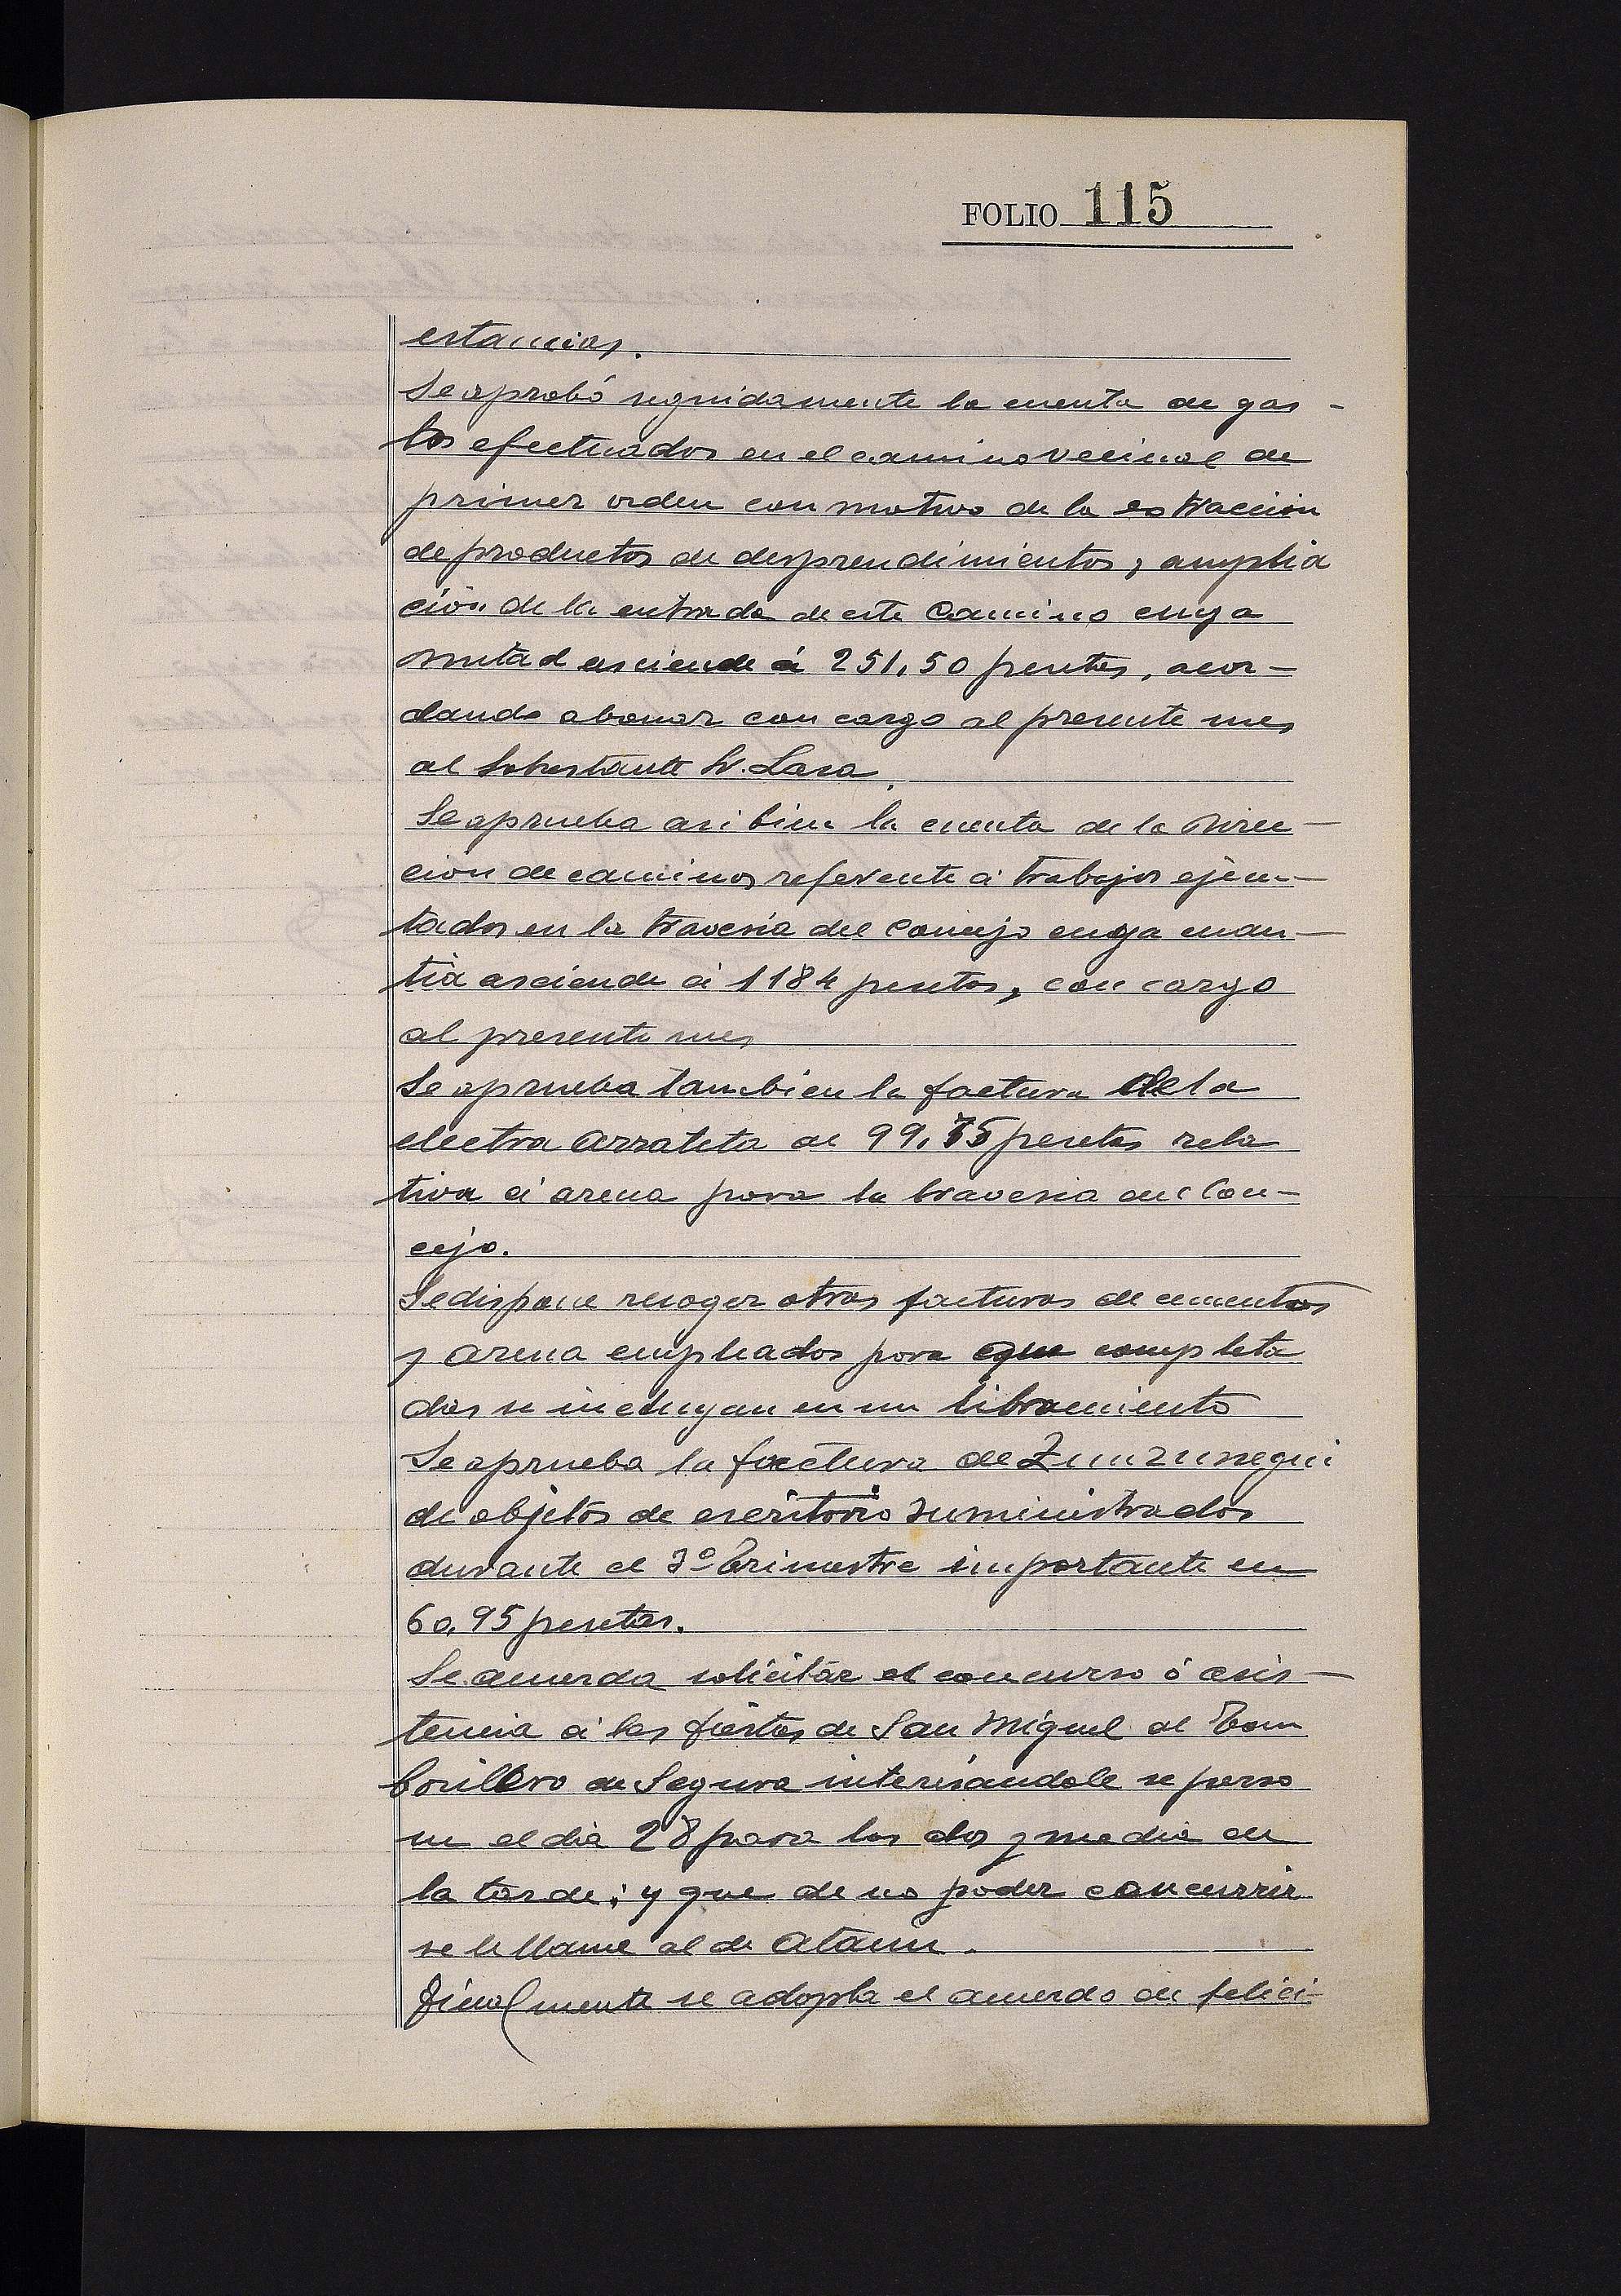 FOLIO 115
estancias.
Se aprobó seguidamente la cuenta de gas-
tos efectuados en el camino vecinal de
primer orden con motivo de la estraccion
de productos de desprendimientos, y amplia
ción de la entrada de este camino cuya
mitad asciende á 251,50 pesetas, acor-
dando abonar con cargo al presente mes
al Sobrestante Sr. Lasa.
Se aprueba asi bien la cuenta de la Direc-
cion de caminos referente á trabajos ejecu-
tados en la travesia del Concejo cuya cuan-
tia asciende á 1184 pesetas, con cargo
al presente mes
Se aprueba tambien la factura de la
electra Arrateta de 99,75 pesetas rela
tiva á arena para la travesia del Con-
cejo.
Se dispone recoger otras facturas de cementos
y arena empleados para que completa
das se incluyan en un libramiento
Se aprueba la factura de Zunzunegui
de objetos de escritorio suministrados
durante el 3º trimestre importante en
60,95 pesetas.
Se acuerda solicitar el concurso ó asis-
tencia á las fiestas de San Miguel al Tam
borillero de Segura interesándole se perso
ne el dia 28 para las dos y media de
la tarde; y que de no poder concurrir
se le llame al de Ataun.
Finalmente se adopta el acuerdo de felici-